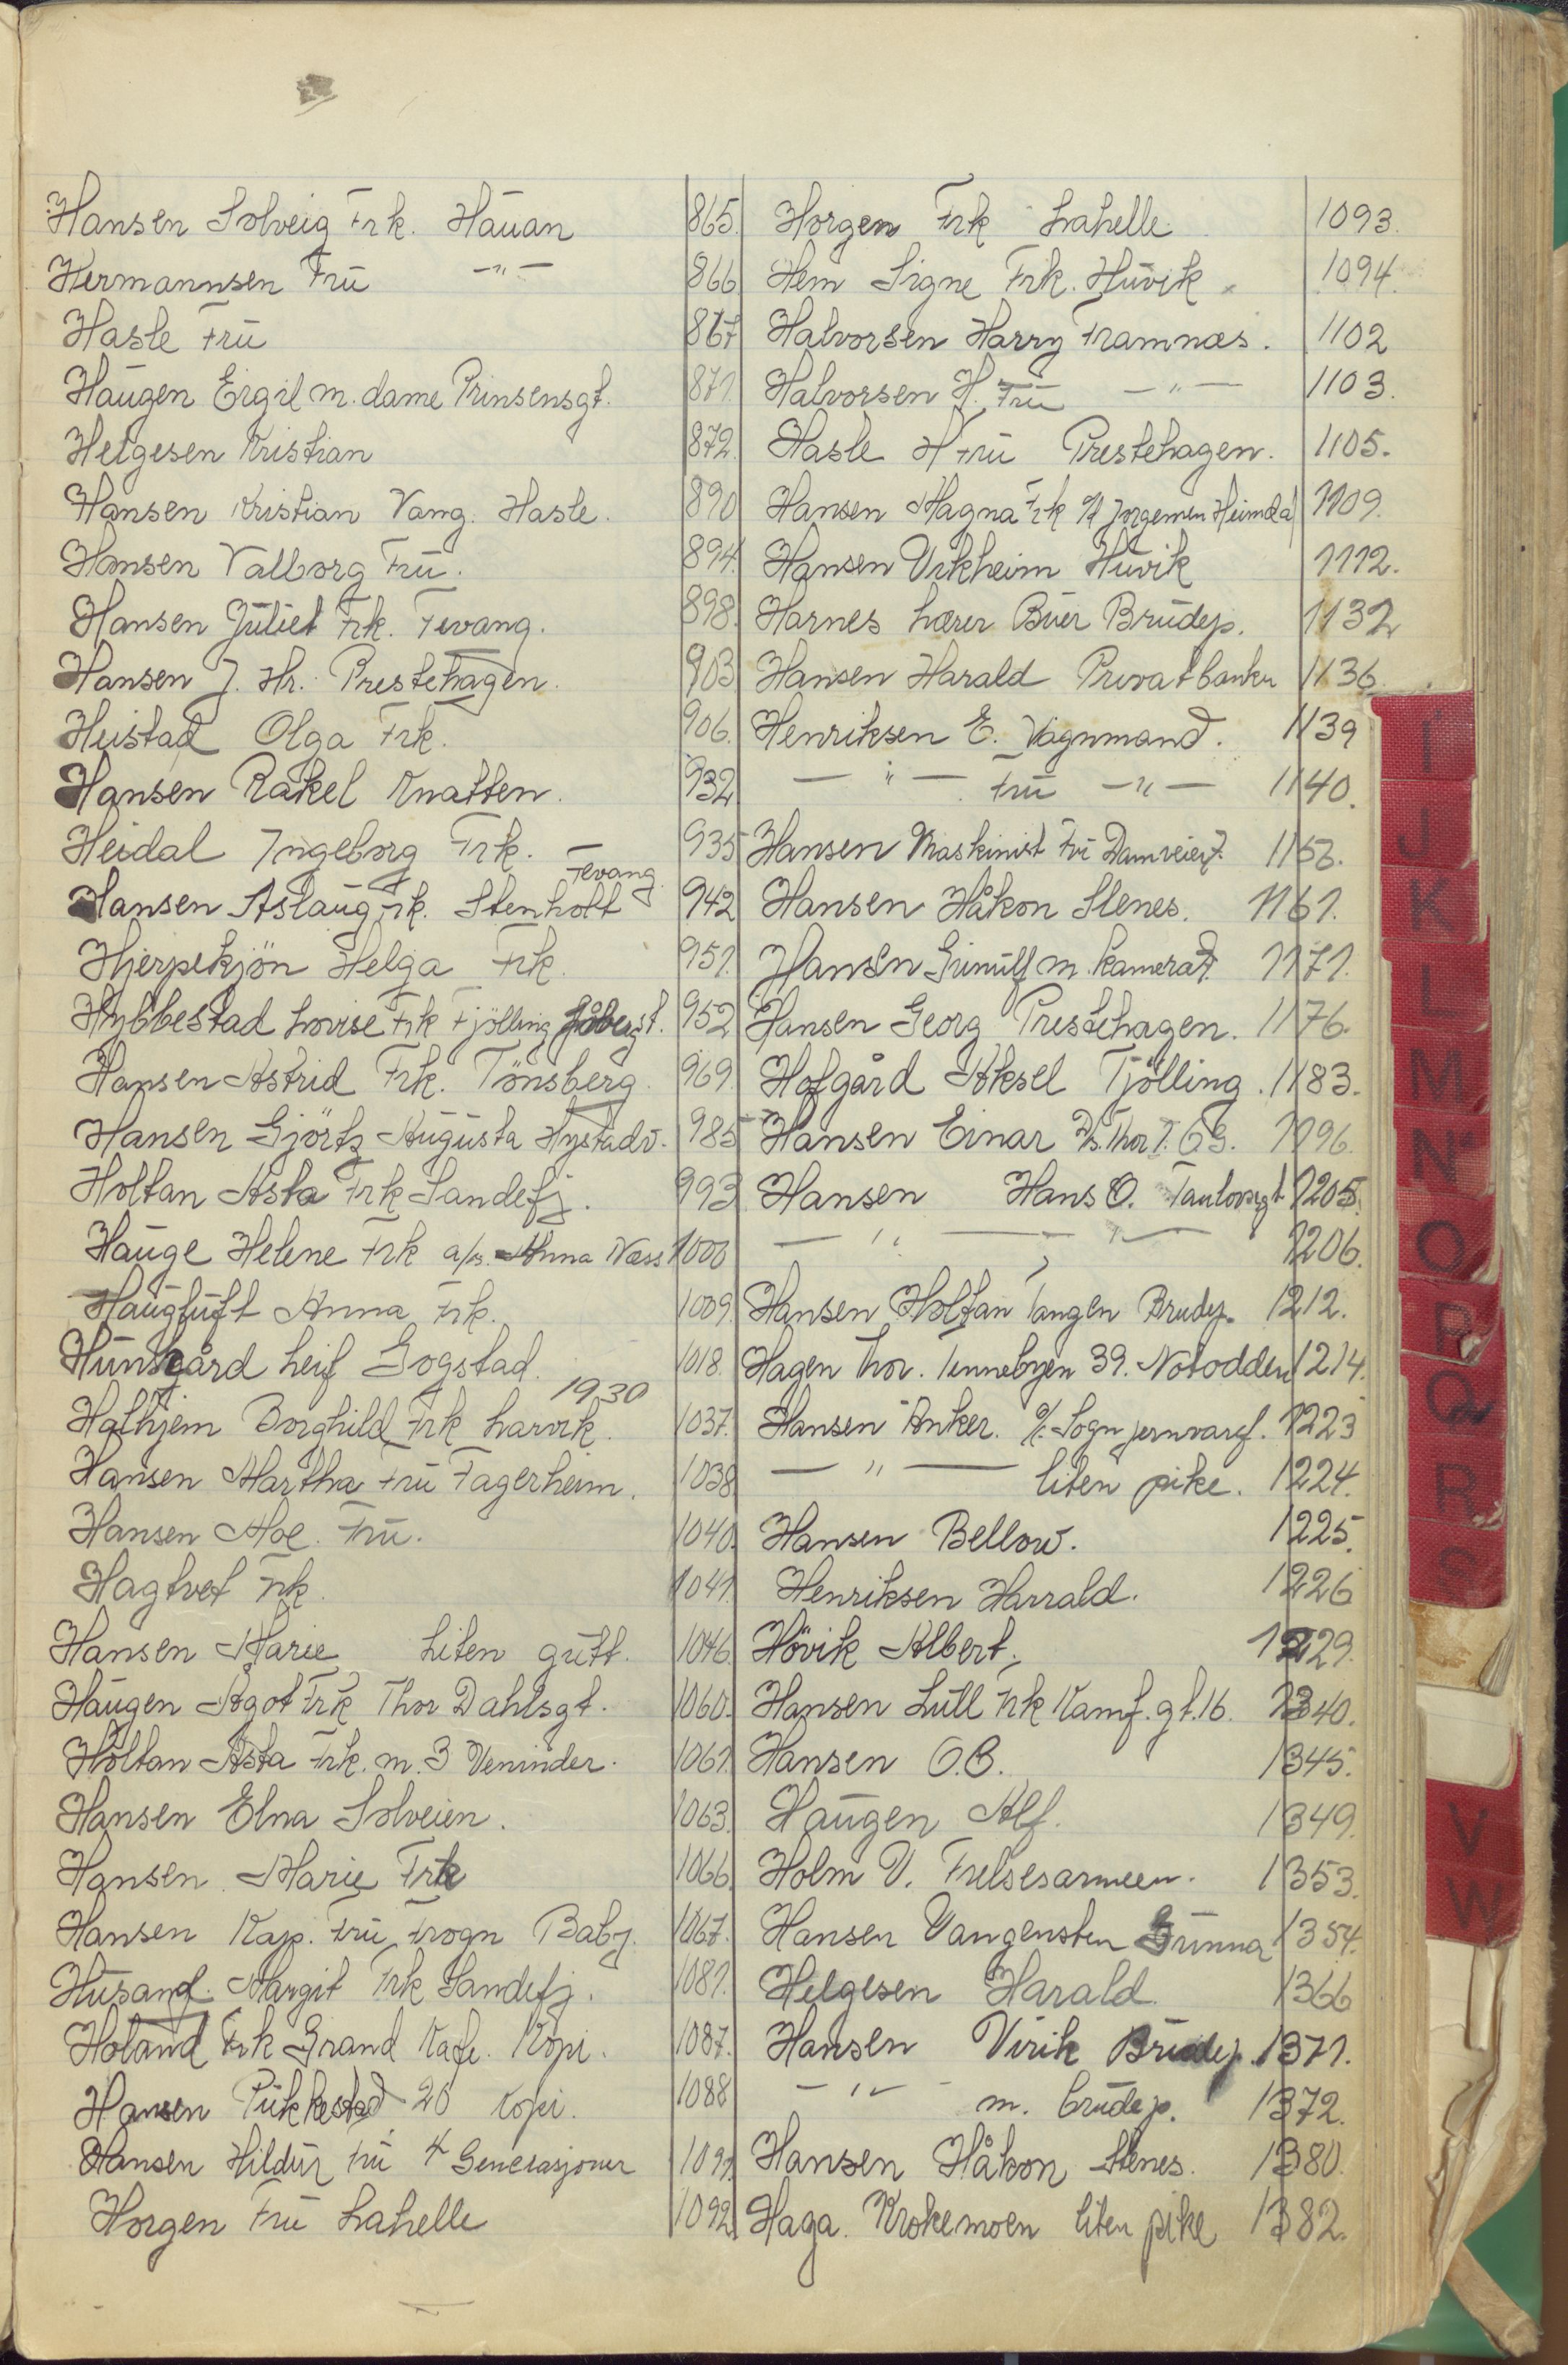 Hansen Solveig Frk. Hauan 865.
Hermannsen Fru —„— 866
Hasle Fru 867
Haugen Eigil m. dame Prinsensgt. 871.
Helgesen Kristian 872.
Hansen Kristian Vang. Hasle. 890
Hansen Valborg Fru. 894.
Hansen Juliet Frk. Fevang. 898.
Hansen J. Hr. Prestehagen. 903
Heistad Olga Frk. 906.
Hansen Rakel Knatten. 932
Heidal Ingeborg Frk. 935
Fevang.
Hansen Aslaug Frk. Stenholt 942
Hjerpekjön Helga Frk. 951.
Hybbestad Lovise Frk Fjölling 952
Hansen Astrid Frk. Tönsberg. 969.
Hansen Gjörtz Augusta Hystadv. 985
Holtan Asta Frk Sandefj. 993
Hauge Helene Frk a/s. Anna Næss 1000
Haugtuft Anna Frk. 1009.
Hunsgård Leif Gogstad. 1018.
1930
Hathjem Borghild Frk Larvik. 1037.
Hansen Martha Fru Fagerheim. 1038
Hansen Moe. Fru. 1040.
Hagtvet Frk. 1041.
Hansen Marie Liten gutt. 1046.
Haugen Ågot Frk Thor Dahlsgt. 1060.
Holtan Asta Frk. m. 3 Veninder. 1061.
Hansen Elna Solveien. 1063.
Hansen Marie Frk 1066.
Hansen Kap. Fru Frogn Baby. 1067.
Husand. Margit Frk Sandefj. 1081.
Holand Frk Grand Kafe. Kopi. 1087.
Hansen Pukkestad 20 Kopi. 1088
Hansen Hildur Fru 4 Generasjoner 1091.
Horgen Fru Lahelle 1092
Horgen Frk Lahelle 1093.
Hem Signe Frk. Huvik. 1094.
Halvorsen Harry Framnæs. 1102
Halvorsen H. Fru —„— 1103.
Hasle H Fru Prestehagen. 1105.
Hansen Magna Frk Jorgensen Heimdal 1109.
Hansen Virkheim Huvik 1112.
Harnes Lærer Buer Brudep. 1132
Hansen Harald Privatbanken 1136.
Henriksen E. Vognmand. 1139
—„— Fru —„— 1140.
Hansen Maskinist Fru Damveien 1158.
Hansen Håkon Stenes. 1161.
Hansen Grimulf m. kamerat. 1171.
Hansen Georg Prestehagen. 1176.
Hofgård Aksel Tjölling. 1183.
Hansen Einar D/s. Thor I. 1196.
Hansen Hans O. 1205.
—„— —„— 1206.
Hansen Holtan Tangen Brudep. 1212.
Hagen Thor. Tennebyen 39. Notodden 1214.
Hansen Anker. Sogn 1223
—„— liten pike. 1224.
Hansen Bellow. 1225.
Henriksen Harrald. 1226
Hövik Albert. 1229.
Hansen Lull Frk Kamf. gt. 16. 1340.
Hansen O.B. 1345.
Haugen Alf. 1349.
Holm V. Frelsesarmeen. 1353.
Hansen Vangensten Gunna 1354.
Helgesen Harald. 1366
Hansen Virik Brudep. 1371.
—„— m. brudep. 1372.
Hansen Håkon Stenes. 1380.
Haga. Krokemoen liten pike 1382.
I
J
K
L
M
N
O
P
Q
R
S
V
W